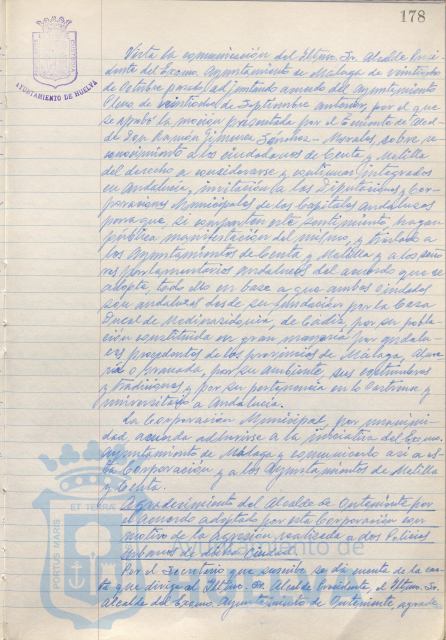 178
AYUNTAMIENTO DE HUELVA
Vista la comunicación del Iltmo. Sr. Alcalde Presi-
dente del Excmo. Ayuntamiento de Málaga de veintiuno
de Octubre pasado, adjuntando acuerdo del Ayuntamiento
Pleno de veintiocho de Septiembre anterior, por el que
se aprobó la moción presentada por el Teniente de Alcal-
de Don Ramón Gimenez Sánchez-Morales, sobre re-
conocimiento a los ciudadanos de Ceuta y Melilla
del derecho a considerarse y continuar integrados
en Andalucía, invitación a las Diputaciones y Cor-
poraciones Municipales de las Capitales andaluzas
para que si comparten este sentimiento, hagan
pública manifestación del mismo, y traslado a
los Ayuntamientos de Ceuta y Melilla y a los seño-
res parlamentarios andaluces del acuerdo que se
adopte, todo ello en base a que ambas ciudades
son andaluzas desde su fundación por la Casa
Ducal de Medinasidonia, de Cádiz, por su pobla-
ción constituida en gran mayoría por andalu-
ces procedentes de las provincias de Málaga, Alme-
ría o Granada, por su ambiente, sus costumbres
y tradiciones y por su pertenencia en lo castrense y
universitario a Andalucía.
La Corporación Municipal, por unanimi-
dad, acuerda adherirse a la iniciativa del Excmo.
Ayuntamiento de Málaga y comunicarlo así a es-
ta Corporación y a los Ayuntamientos de Melilla
y Ceuta.
Agradecimiento del Alcalde de Onteniente por
el acuerdo adoptado por esta Corporación con
motivo de la agresión realizada a dos Policías
Urbanos de dicha Ciudad.
Por el Secretario que suscribe se dió cuenta de la car-
ta que dirige al Iltmo. Sr. Alcalde Presidente, el Iltmo. Sr.
Alcalde del Excmo. Ayuntamiento de Onteniente, agrade-
PORTUS MARIS
ET TERRAE